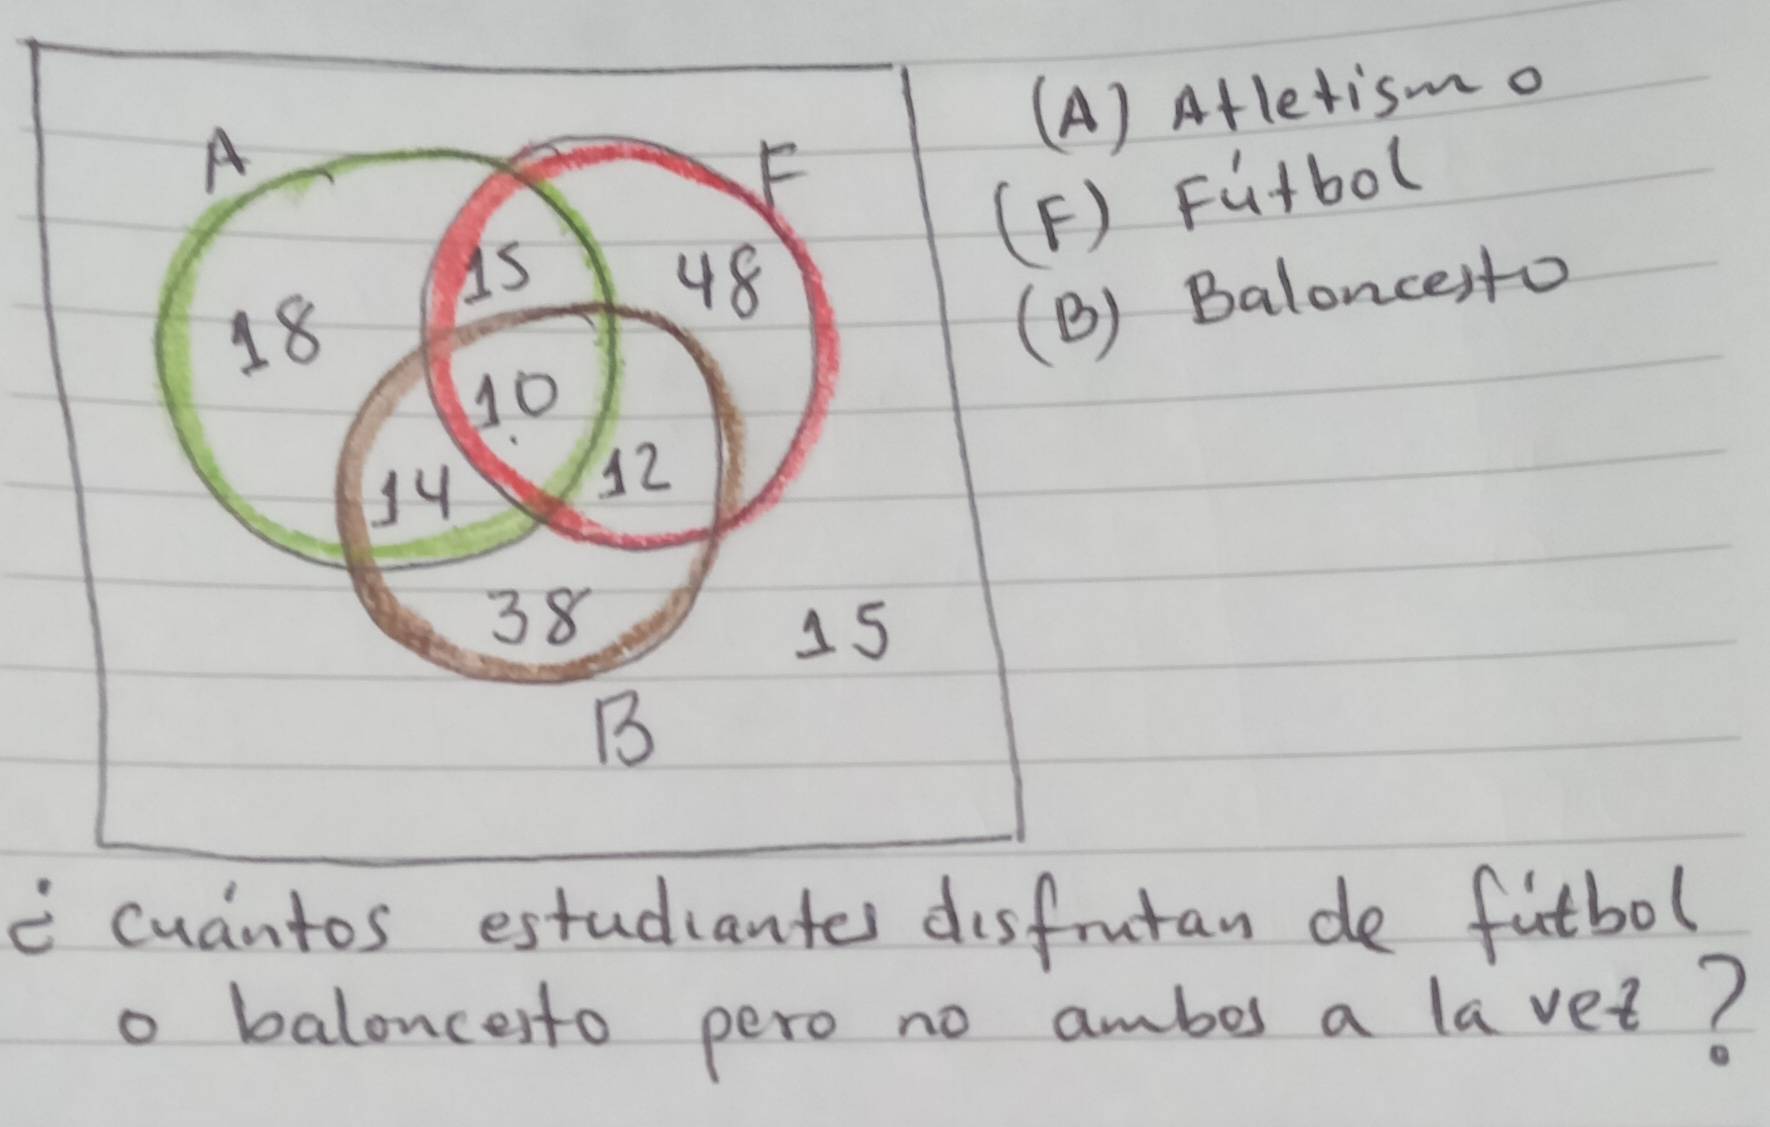 A
F
15
48
18
10
14
12
38
15
B
(A) Atletismo
(F) Fútbol
(B) Baloncesto
¿ cuántos estudiantes disfrutan de fútbol
o baloncesto pero no ambos a la vez ?